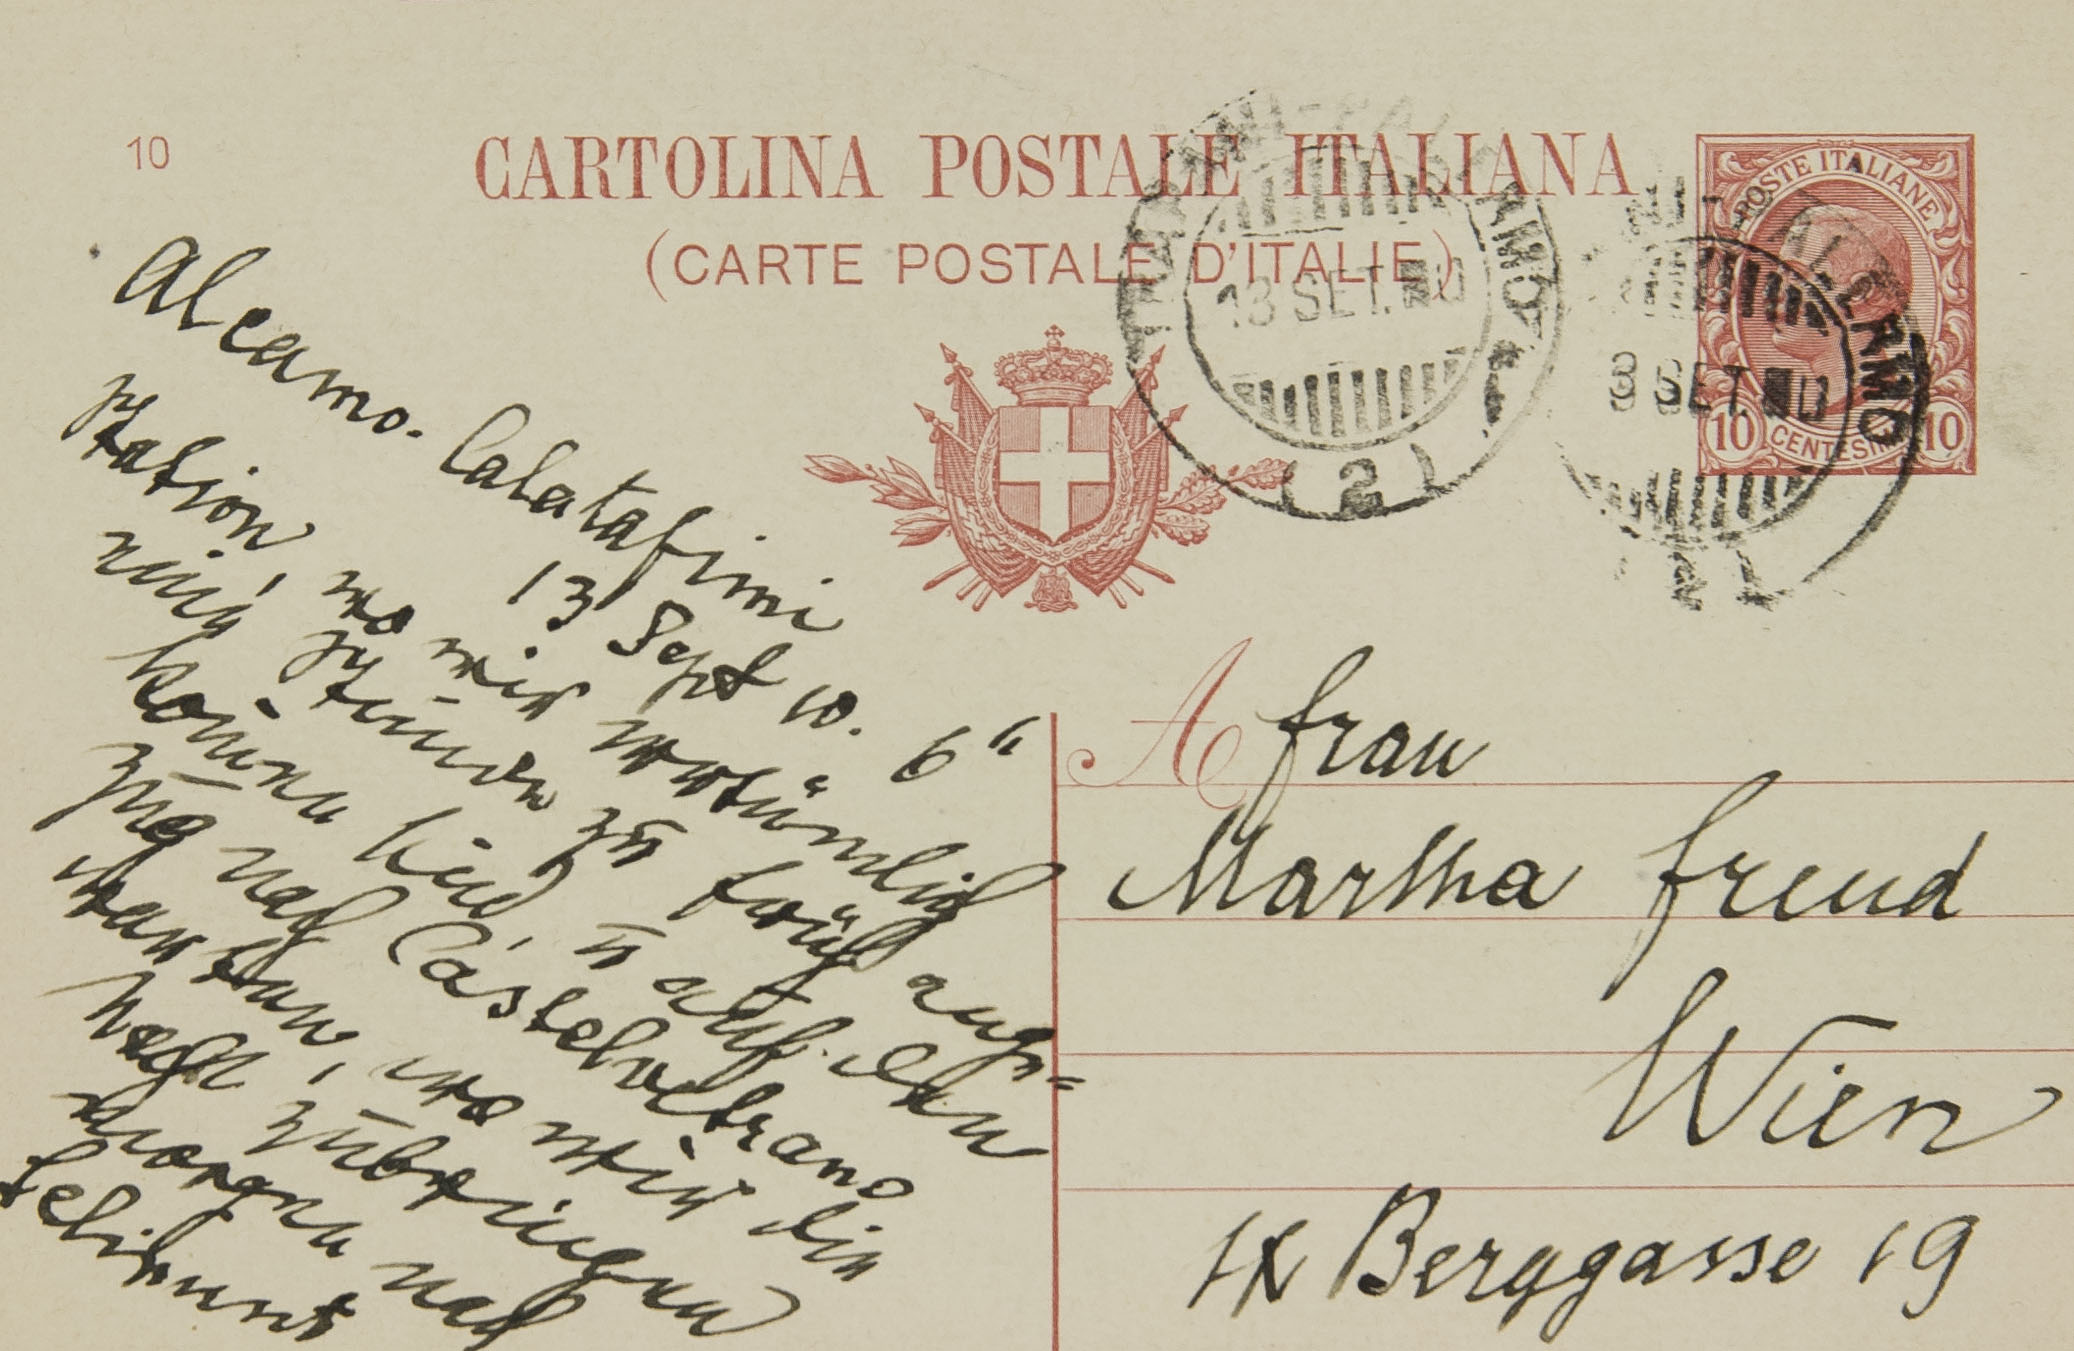 10
CARTOLINA POSTALE ITALIANA
(CARTE POSTALE D'ITALIE)
POSTE ITALIANE
10 CENTESIMI 10
TRAPANI-PALERMO
13 SET. 10
(2)
PALERMO
3 SET. 10
Alcamo-Calatafimi
13 Sept 10. 6h
Station, wo wir irrtümlich
eine Stunde zu früh ange=
kommen sind, u auf den
Zug nach Castelvetrano
warten, wo wir die
Nacht zubringen
morgen nach
Selinunt
A Frau
Martha Freud
Wien
IX Berggasse 19